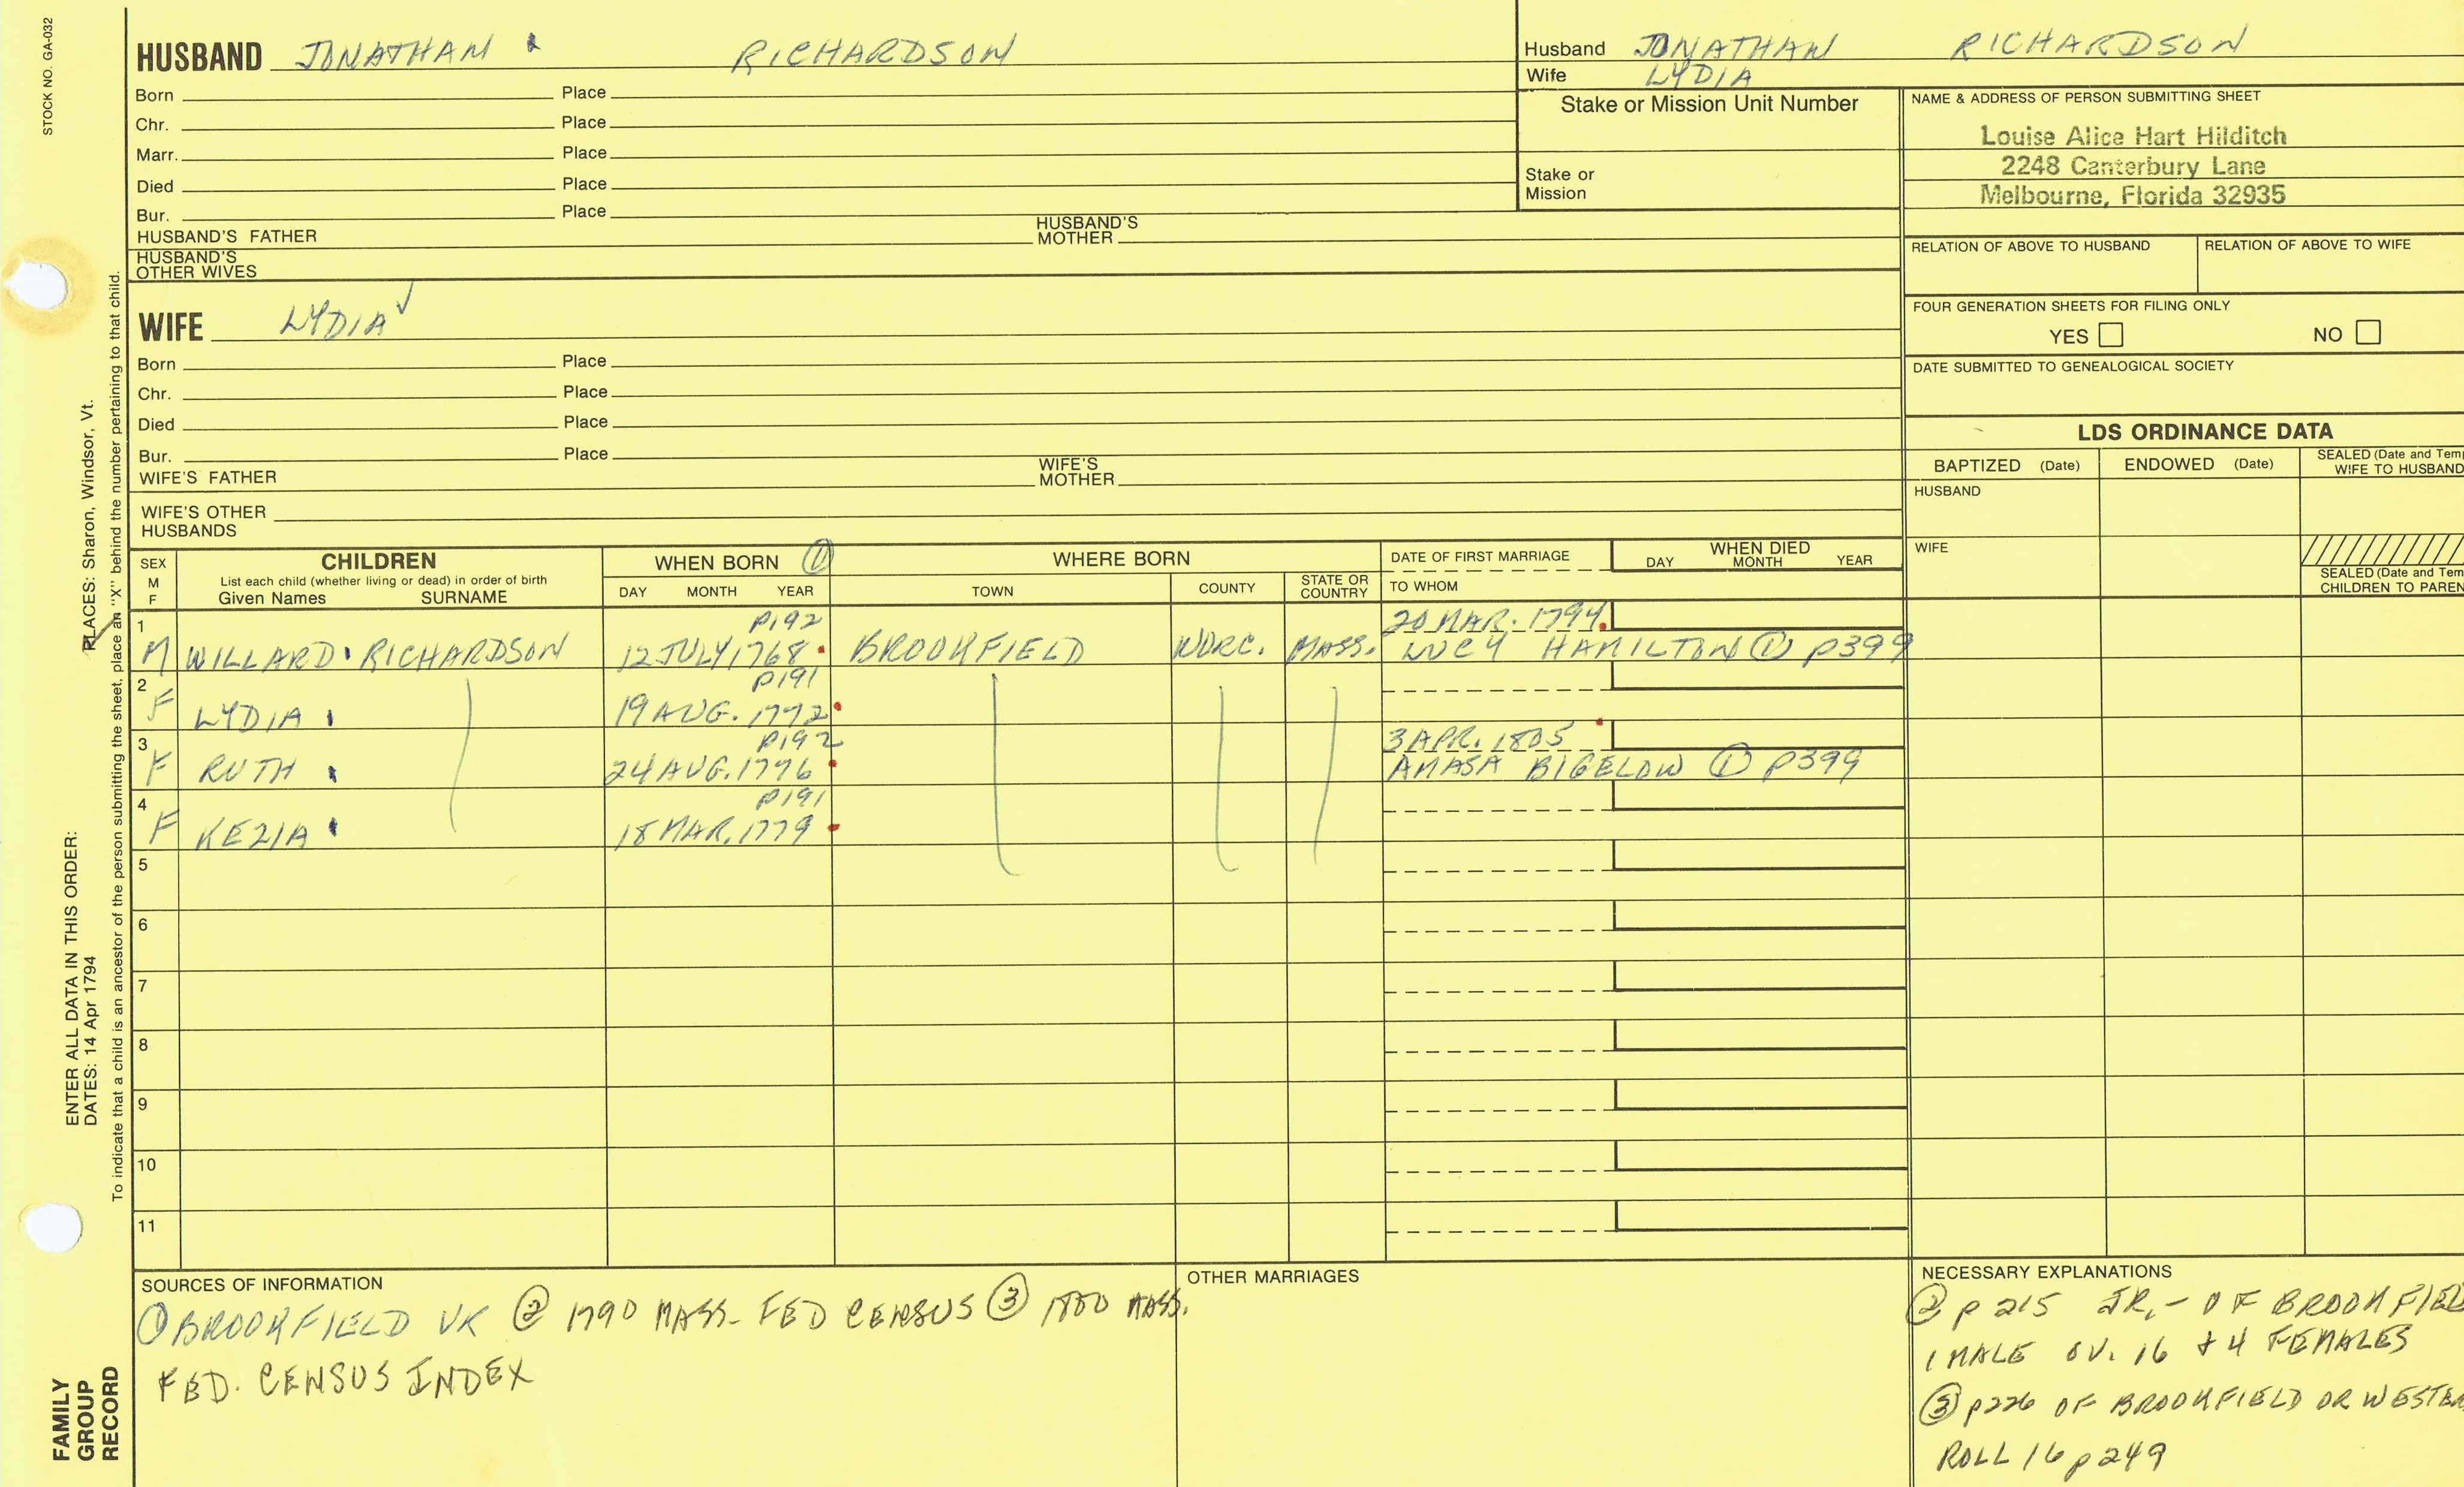 STOCK NO. GA-032
HUSBAND JONATHAN RICHARDSON
Born Place
Chr. Place
Marr. Place
Died Place
Bur. Place
HUSBAND'S FATHER HUSBAND'S MOTHER
HUSBAND'S OTHER WIVES
Husband JONATHAN RICHARDSON
Wife LYDIA
Stake or Mission Unit Number
Stake or Mission
NAME & ADDRESS OF PERSON SUBMITTING SHEET
Louise Alice Hart Hilditch
2248 Canterbury Lane
Melbourne, Florida 32935
RELATION OF ABOVE TO HUSBAND RELATION OF ABOVE TO WIFE
FOUR GENERATION SHEETS FOR FILING ONLY
YES NO
DATE SUBMITTED TO GENEALOGICAL SOCIETY
WIFE LYDIA
Born Place
Chr. Place
Died Place
Bur. Place
WIFE'S FATHER WIFE'S MOTHER
WIFE'S OTHER HUSBANDS
LDS ORDINANCE DATA
BAPTIZED (Date) ENDOWED (Date) SEALED (Date and Tem
WIFE TO HUSBAND
HUSBAND
WIFE
SEALED (Date and Tem
CHILDREN TO PAREN
SEX M F
CHILDREN
List each child (whether living or dead) in order of birth
Given Names SURNAME
WHEN BORN ①
DAY MONTH YEAR
WHERE BORN
TOWN COUNTY STATE OR COUNTRY
DATE OF FIRST MARRIAGE
TO WHOM
WHEN DIED
DAY MONTH YEAR
1 P192 20 MAR. 1794
M WILLARD RICHARDSON 12 JULY 1768 BROOKFIELD WORC. MASS. LUCY HAMILTON ① P399
2 P191
F LYDIA 19 AUG. 1772
3 P192 3 APR. 1805
F RUTH 24 AUG. 1776 AMASA BIGELOW ① P399
4 P191
F KEZIA 18 MAR. 1779
5
6
7
8
9
10
11
SOURCES OF INFORMATION
① BROOKFIELD VR ② 1790 MASS. FED CENSUS ③ 1800 MASS.
FED. CENSUS INDEX
OTHER MARRIAGES
NECESSARY EXPLANATIONS
② p 215 JR. - OF BROOKFIELD
1 MALE OV. 16 + 4 FEMALES
③ p226 OF BROOKFIELD OR WESTER
ROLL 16 p 249
ENTER ALL DATA IN THIS ORDER:
DATES: 14 Apr 1794 PLACES: Sharon, Windsor, Vt.
To indicate that a child is an ancestor of the person submitting the sheet, place an "X" behind the number pertaining to that child.
FAMILY
GROUP
RECORD